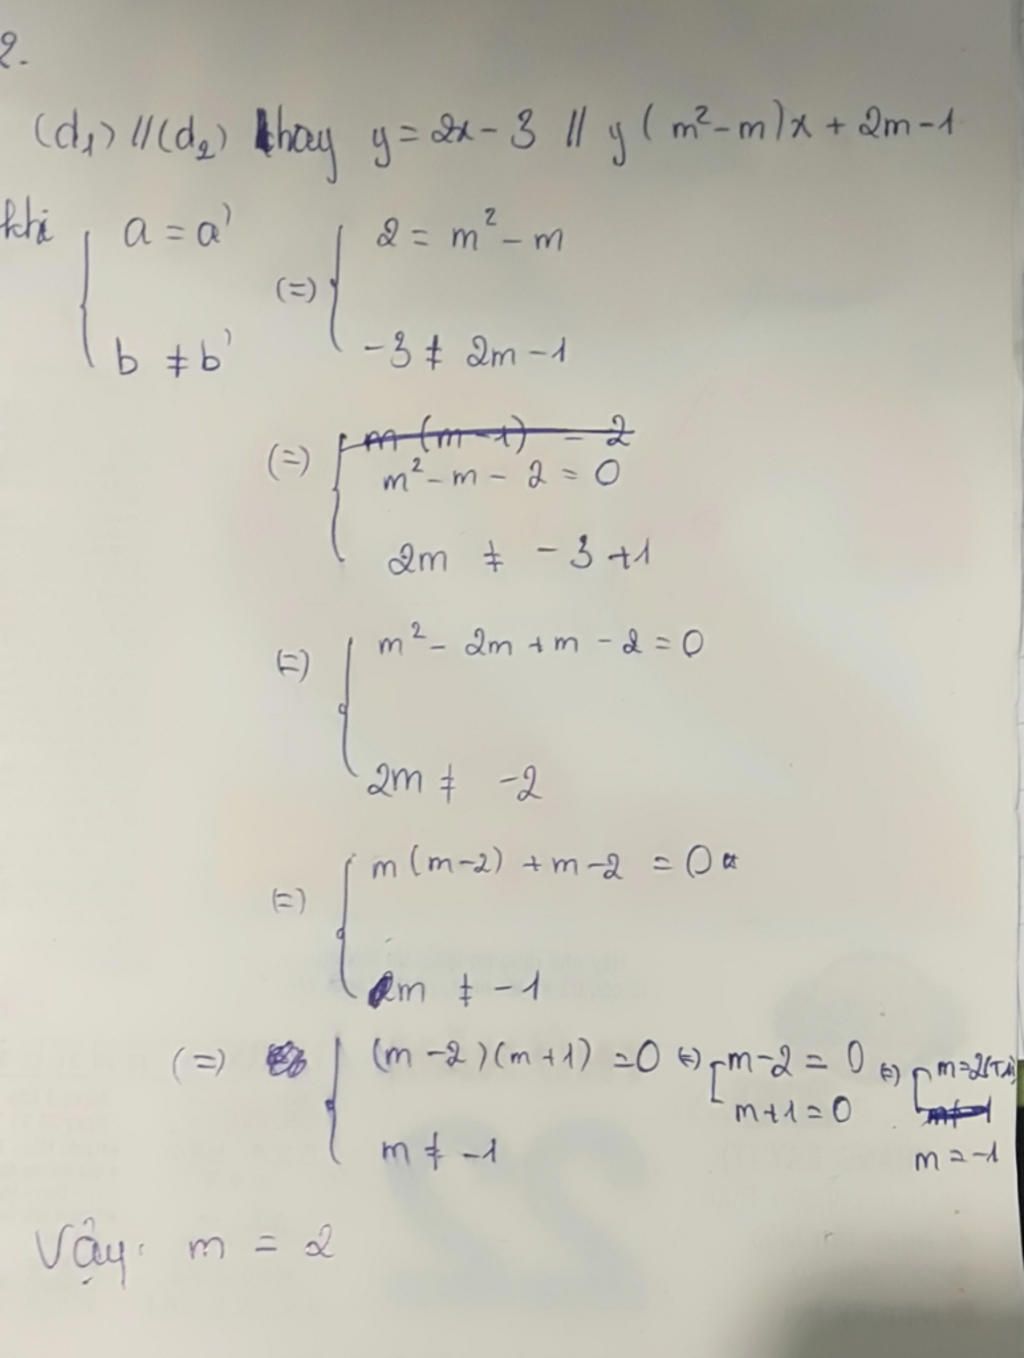 2.
(d₁) // (d₂) hay y = 2x - 3 // y (m² - m)x + 2m - 1
khi { a = a' (=) { 2 = m² - m
b ≠ b' -3 ≠ 2m - 1
(=) { m (m-1) = 2
m² - m - 2 = 0
2m ≠ -3 + 1
(=) { m² - 2m + m - 2 = 0
2m ≠ -2
(=) { m (m-2) + m - 2 = 0
m ≠ -1
(=) { (m - 2)(m + 1) = 0 (=) [ m - 2 = 0 (=) [ m = 2 (T
m ≠ -1 m + 1 = 0 m = -1
Vậy: m = 2